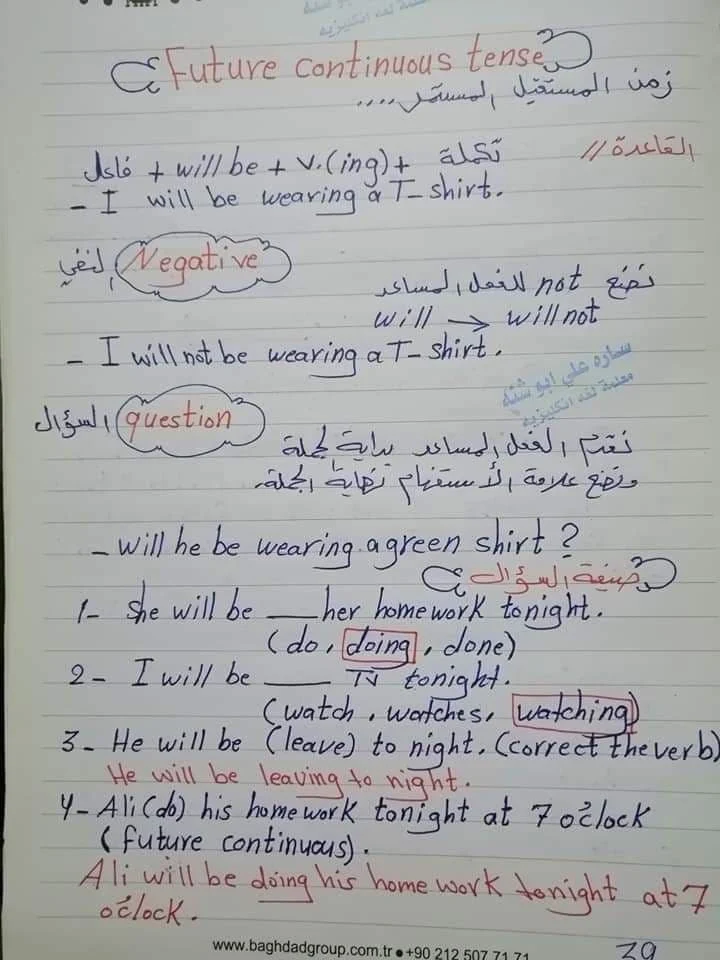 معلمة لغة انكليزية
Future continuous tense
زمن المستقبل المستمر ....
القاعدة //
فاعل + will be + v.(ing) + تكملة
- I will be wearing a T-shirt.
النفي Negative
نضع not للفعل المساعد
will → will not
- I will not be wearing a T-shirt.
ساره علي ابو شنه
معلمة لغة انكليزية
السؤال question
نقدم الفعل المساعد بداية لجملة
ونضع علامة الأستفهام نهاية الجملة.
- will he be wearing a green shirt ?
صيغة السؤال
1- She will be ___ her homework tonight.
(do, doing, done)
2- I will be ___ TV tonight.
(watch, watches, watching)
3- He will be (leave) to night. (correct the verb)
He will be leaving to night.
4- Ali (do) his homework tonight at 7 o'clock
(future continuous).
Ali will be doing his home work tonight at 7
o'clock.
www.baghdadgroup.com.tr ● +90 212 507 71 71
39